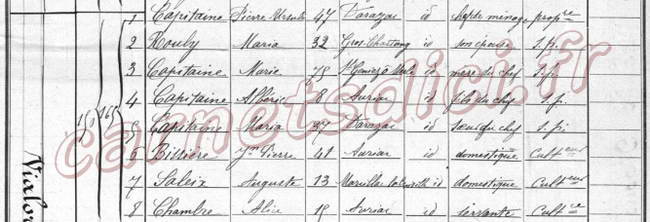 1 Capitaine Pierre Ursule 47 Darazac id chef de ménage propre
2 Rouby Maria 32 Gros-Chastang id son épouse s.p.
3 Capitaine Marie 75 St Geniez ô Merle id mère du chef s.p.
4 Capitaine Albéric 8 Auriac id fils du chef s.p.
5 Capitaine Maria 37 Darazac id soeur du chef s.p.
6 Bissière Jn Pierre 41 Auriac id domestique Culteur
7 Saleix Auguste 13 id domestique Culteur
8 Chambre Alice 15 Auriac id servante
carnetsdici.fr